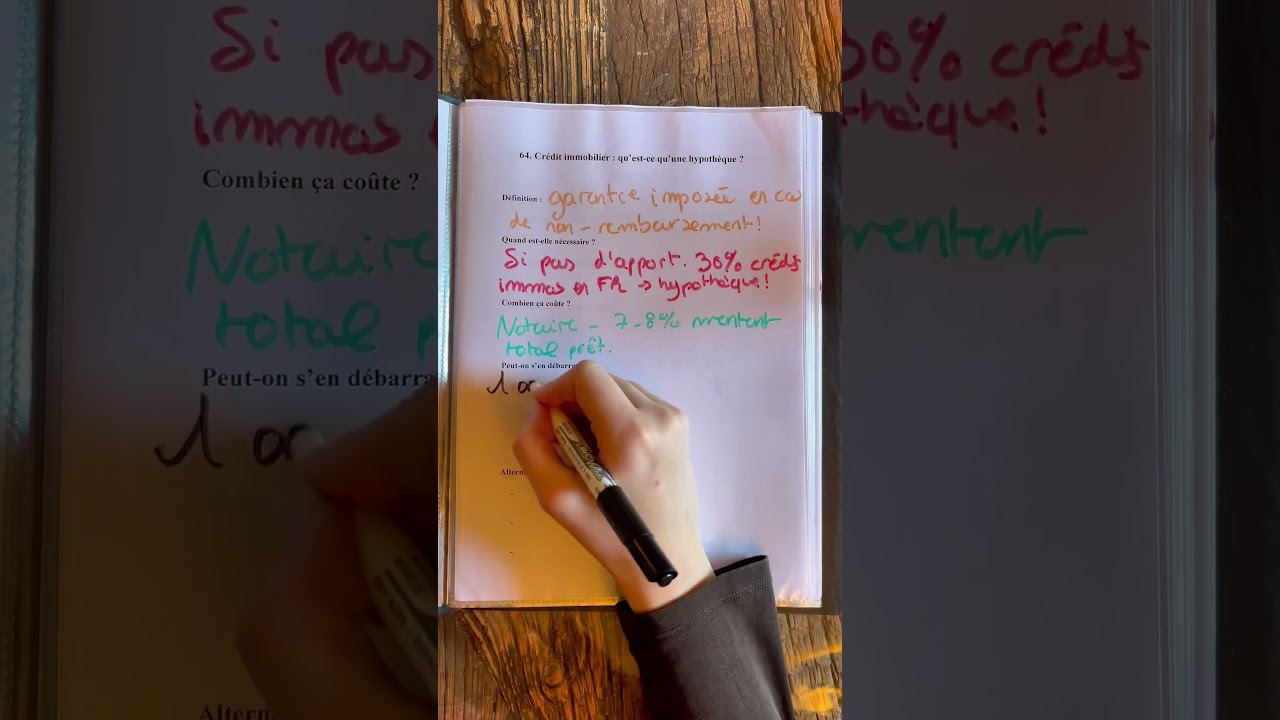 64. Crédit immobilier : qu'est-ce qu'une hypothèque ?
Définition : garantie imposée en cas
de non-remboursement!
Quand est-elle nécessaire ?
Si pas d'apport. 30% crédits
immos en FR → hypothèque!
Combien ça coûte ?
Notaire - 7-8% montant
total prêt.
Peut-on s'en débarra
1 an
Altern